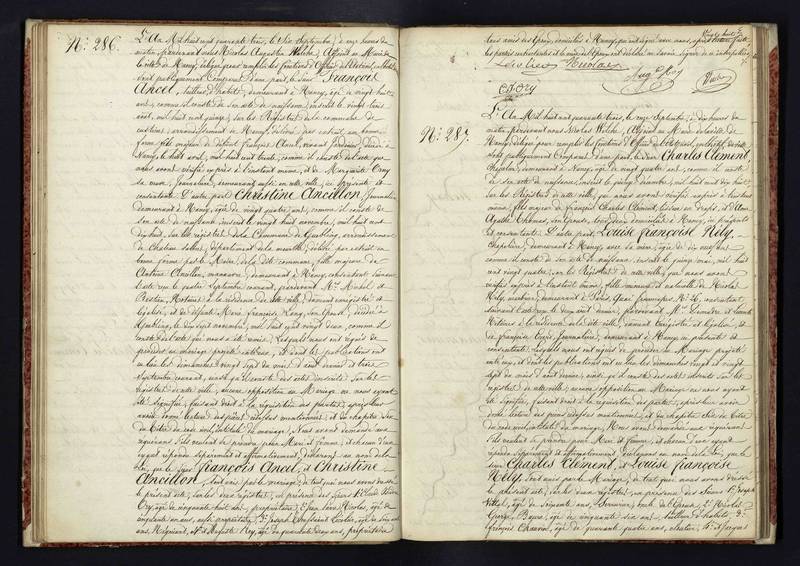 N.° 286.
L'An Mil huit cent quarante trois, le six Septembre, à onze heures du
matin, pardevant nous Nicolas Augustin Welche, Adjoint au Maire de
la ville de Nancy, délégué pour remplir les fonctions d'Officier de l'état civil,
sont publiquement Comparus d'une part, le Sieur François
Ancel, tailleur d'habits, demeurant à Nancy, âgé de vingt huit
ans, comme il conste de son acte de naissance, inscrit le vingt trois
avril, mil huit cent quinze, sur les Registres de la commune de
arrondissement de Nancy, délivré par extrait en bonne
forme, fils majeur de défunt François Ancel, vivant jardinier, décédé à
Nancy, le huit avril, mil huit cent trente, comme il conste de l'acte que
nous avons vérifié après à l'instant même, et de Marguerite
sa veuve, journalière, demeurant en cette ville, ici présente et
consentante. D'autre part Christine Ancillon, journalière
demeurant à Nancy, âgée de vingt quatre ans, comme il conste de
son acte de naissance, inscrit le vingt huit novembre, mil huit cent
dix huit, sur les registres de la Commune de Guébling, arrondissement
de Château Salins, département de la meurthe, délivré par extrait en
bonne forme par le Maire de la dite commune, fille majeure de
Antoine Ancillon, manœuvre, demeurant à Nancy, consentant suivant
l'acte reçu le quatre Septembre courant, pardevant M.es
Notaires à la résidence de cette ville, dûment enregistré et
légalisé, et de défunte Marie françoise Lang, son épouse, décédée à
Guébling, le dix sept novembre, mil huit cent vingt deux, comme il
conste de l'acte qui nous a été remis. Lesquels nous ont requis de
procéder au mariage projeté entr'eux, et dont les publications ont
eu lieu les dimanches vingt sept du mois d'août dernier et trois
Septembre courant, ainsi qu'il conste des actes inscrits sur les
registres de cette ville; aucune opposition au Mariage ne nous ayant
été signifiée, faisant droit à la réquisition des parties, après leur
avoir donné lecture des pièces ci-dessus mentionnées, et du chapitre Six
du titre du code civil, intitulé du mariage, Nous avons demandé aux
requérans s'ils veulent se prendre pour Mari et femme, et chacun d'eux
ayant répondu séparément et affirmativement, déclarons au nom de la
loi, que le Sieur françois Ancel, et Christine
Ancillon, sont unis par le mariage; de tout quoi nous avons dressé
le présent acte, sur les deux registres, en présence des Sieurs
Ory, âgé de cinquante huit ans, propriétaire, Jean Louis Nicolas, âgé de
cinquante six ans, aussi propriétaire, 3.° Joseph
ans, Négociant, 4.° et Auguste Rey, âgé de quarante deux ans, propriétaire
tous amis des époux, domiciliés à Nancy, qui ont signé avec nous, après lecture faite
les parties contractantes et la mère de l'époux ont déclaré ne savoir signer de ce interpellées
Nicolas
Aug.te Rey
Ory
N.° 287.
L'An Mil huit cent quarante trois, le onze Septembre, à dix heures du
matin, pardevant nous Nicolas Welche, Adjoint au Maire de la ville de
Nancy, délégué pour remplir les fonctions d'Officier de l'état civil,
sont publiquement Comparus d'une part, le Sieur Charles Clément,
Chapelier, demeurant à Nancy, âgé de vingt quatre ans, comme il conste
de son acte de naissance, inscrit le quinze décembre, mil huit cent dix huit,
sur les Registres de cette ville, que nous avons vérifié après à l'instant
même, fils majeur de françois Charles Clément, tisseur en draps, et d'Anne
Agathe Thomas, son épouse, tous deux domiciliés à Nancy, ici présents
et consentants. D'autre part Louise françoise Nély,
chapelière, demeurant à Nancy, avec sa mère, âgée de dix neuf ans
comme il conste de son acte de naissance, inscrit le quinze mai, mil huit
cent vingt quatre, sur les Registres de cette ville, que nous avons
vérifié après à l'instant même, fille mineure et naturelle de Nicolas
Nély, demeurant à Paris, consentant
suivant acte reçu le deux août dernier, pardevant M.es
Notaires à la résidence de la dite ville, dûment enregistré et légalisé, et
de françoise journalière, demeurant à Nancy, ici présente et
consentante. Lesquels nous ont requis de procéder au Mariage projeté
entr'eux, et dont les publications ont eu lieu les dimanches vingt et vingt
sept du mois d'août dernier, ainsi qu'il conste des actes inscrits sur les
registres de cette ville; aucune opposition au Mariage ne nous ayant
été signifiée, faisant droit à la réquisition des parties, après leur avoir
donné lecture des pièces ci-dessus mentionnées, et du chapitre Six du titre
du code civil, intitulé du mariage, Nous avons demandé aux requérans
s'ils veulent se prendre pour Mari et femme, et chacun d'eux ayant
répondu séparément et affirmativement, déclarons au nom de la loi, que le
Sieur Charles Clément, et Louise françoise
Nély, sont unis par le Mariage, de tout quoi nous avons dressé
le présent acte, sur les deux registres, en présence des Sieurs 1.° Joseph
âgé de soixante ans, Serrurier, oncle de l'époux, 2.° Nicolas
âgé de cinquante six ans, tailleur d'habits, 3.°
françois Chauvin, âgé de quarante quatre ans, 4.° et Jacques